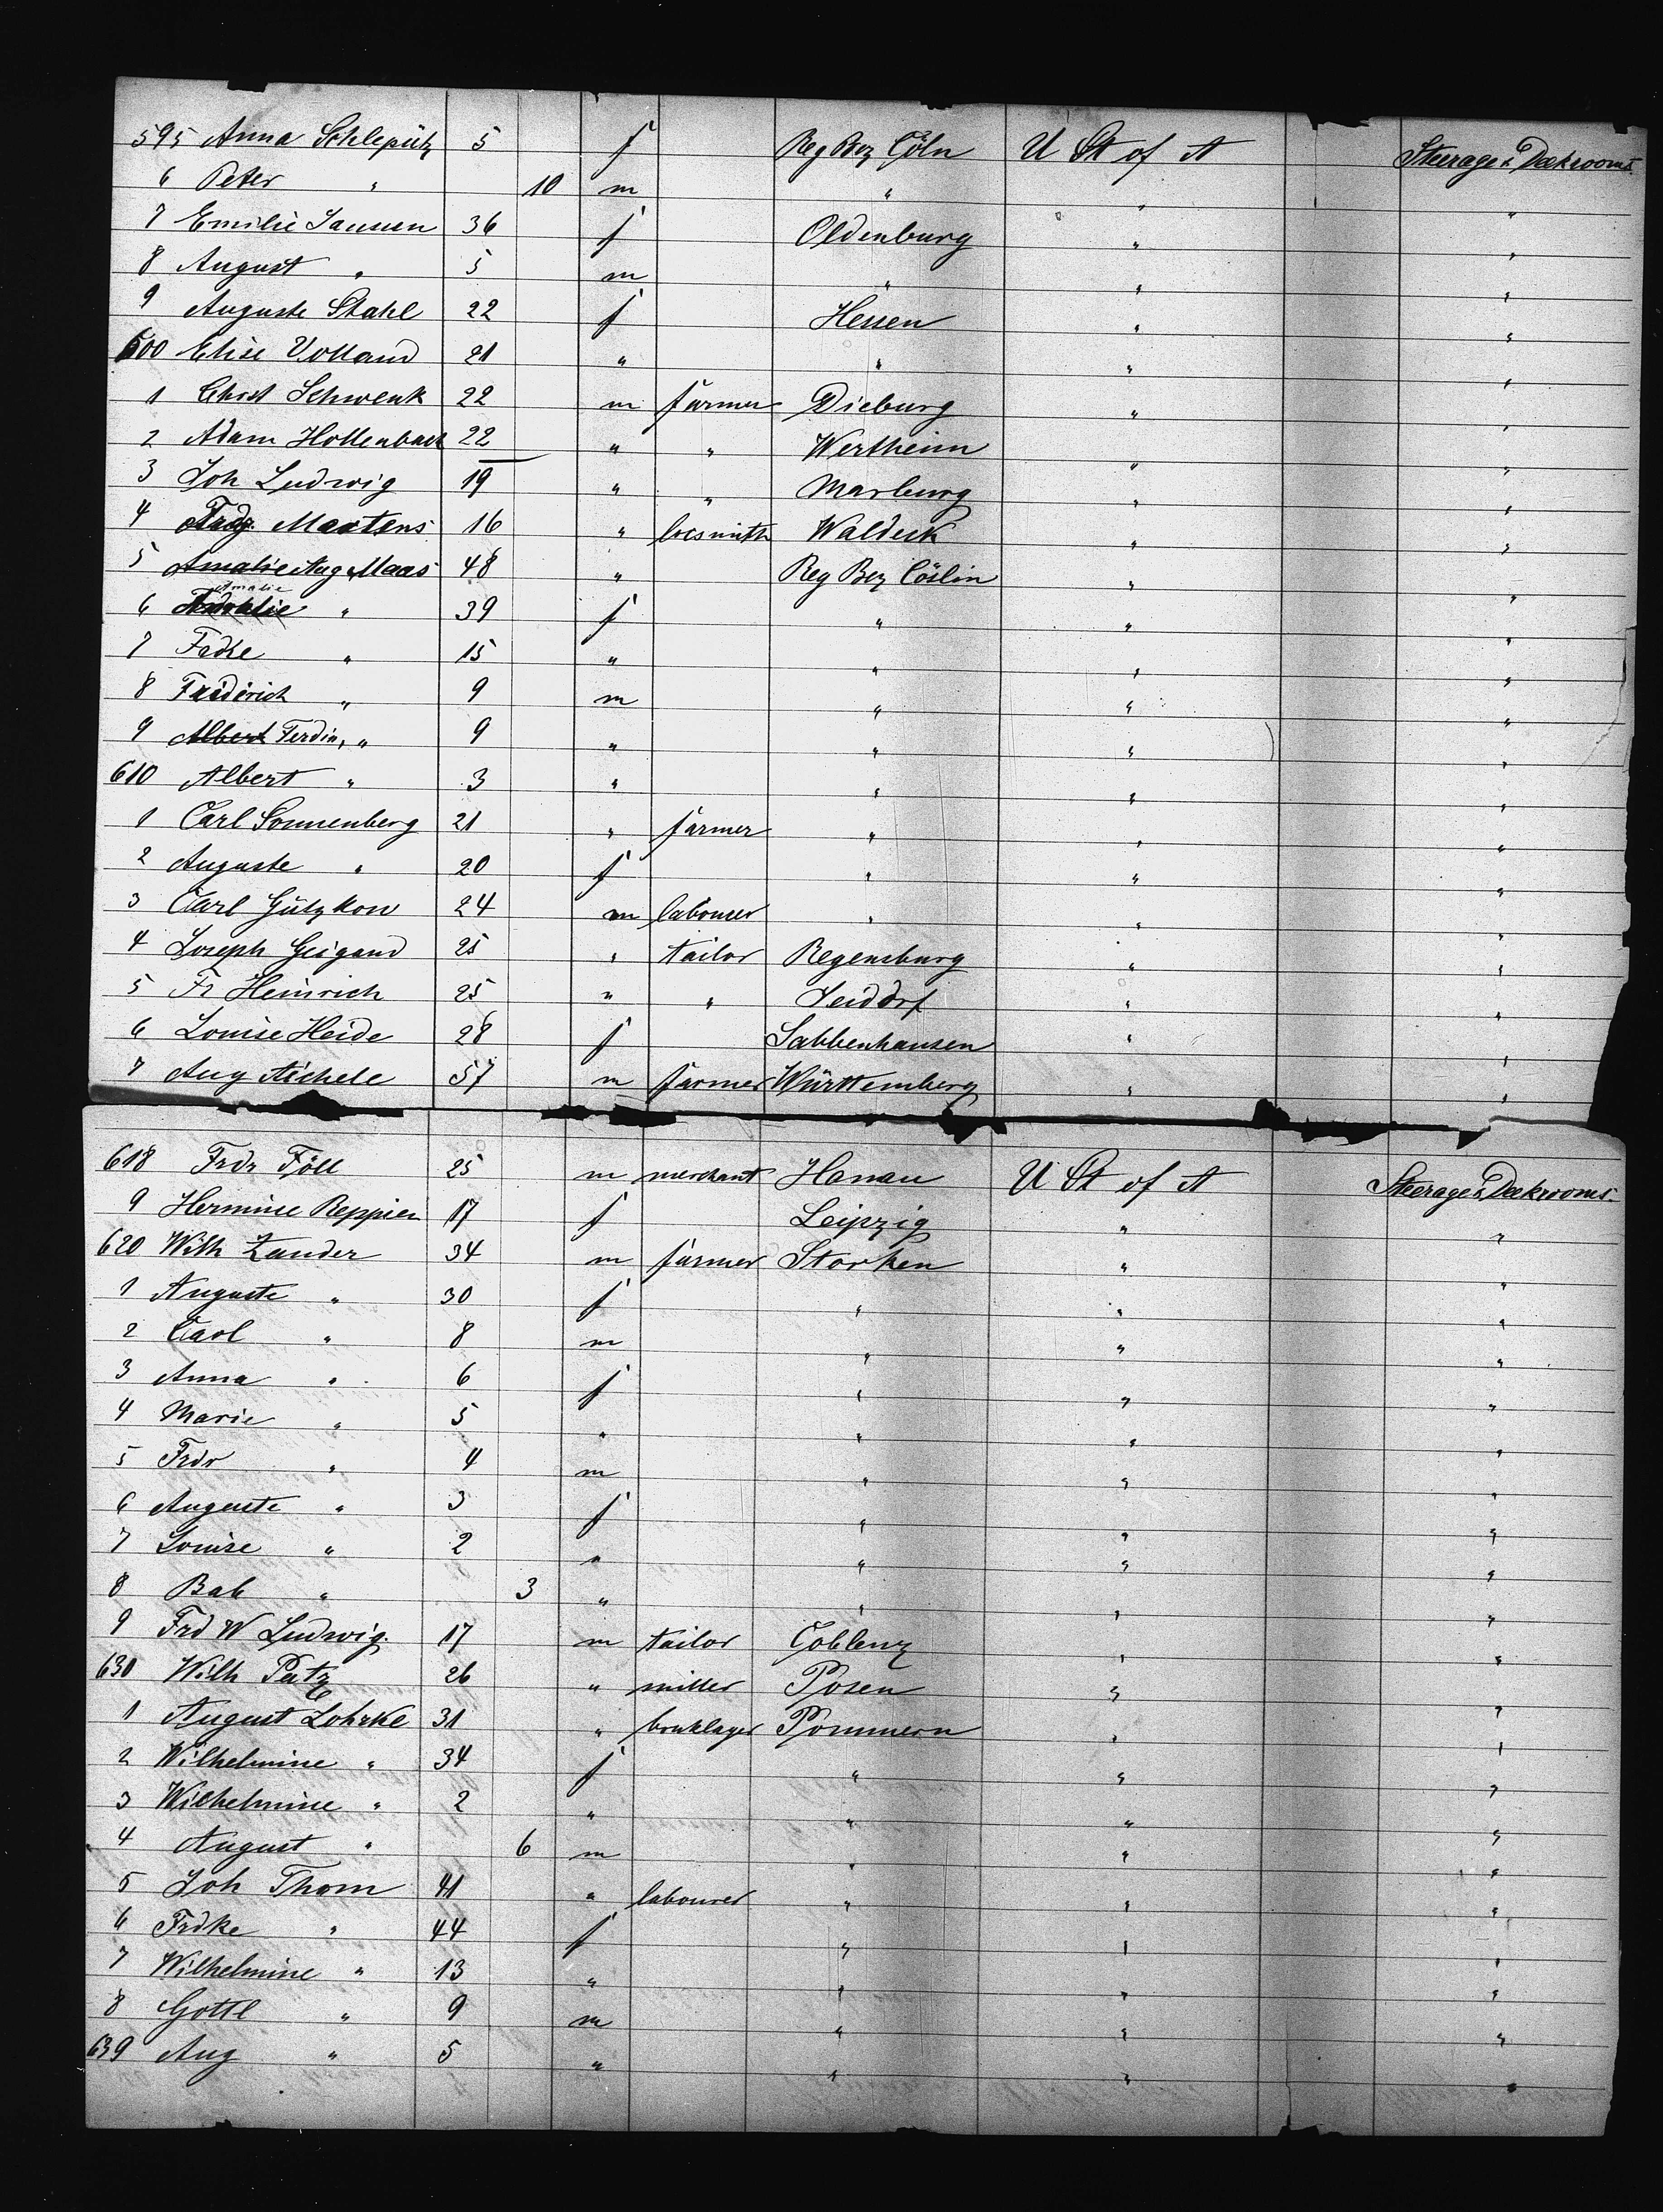 595 Anna Schlepütz 5 f Reg Bez Cöln U St of A Steerage & Deckrooms
6 Peter " 10 m " " "
7 Emilie Janssen 36 f Oldenburg " "
8 August " 5 m " " "
9 Auguste Stahl 22 f Hessen " "
600 Elise Volland 21 " " " "
1 Christ Schwenk 22 m farmer Dieburg " "
2 Adam Hollenbach 22 " " Wertheim " "
3 Joh Ludwig 19 " " Marburg " "
4 Martens 16 " locsmith Waldeck " "
5 Amalie Aug Maas 48 " Reg Bez Cöslin " "
6 Amalie " 39 f " " "
7 Fadke " 15 " " " "
8 Friderich " 9 m " " "
9 Albert Ferdin, " 9 " " " "
610 Albert " 3 " " " "
1 Carl Sonnenberg 21 " farmer " " "
2 Auguste " 20 f " " "
3 Carl Gützkow 24 m labourer " " "
4 Joseph Geigand 25 " tailor Regensburg " "
5 Fr Heinrich 25 " " Seiddorf " "
6 Louise Heide 28 f Sabbenhausen " "
7 Aug Aichele 57 m farmer Württemberg " "
618 Frdr Föll 25 m merchant Hanau U St of A Steerage & Deckrooms
9 Hermine Reppien 17 f Leipzig " "
620 Wilh Zander 34 m farmer Storken " "
1 Auguste " 30 f " " "
2 Carl " 8 m " " "
3 Anna " 6 f " " "
4 Marie " 5 " " " "
5 Frdr " 4 m " " "
6 Auguste " 3 f " " "
7 Louise " 2 " " " "
8 Bab " 3 " " " "
9 Frd W Ludwig 17 m tailor Coblenz " "
630 Wilh Patz 26 " miller Posen " "
1 August Lohrke 31 " bruklayer Pommern " "
2 Wilhelmine " 34 f " " "
3 Wilhelmine " 2 " " " "
4 August " 6 m " " "
5 Joh Thom 41 " labourer " " "
6 Frdke " 44 f " " "
7 Wilhelmine " 13 " " " "
8 Gottl " 9 m " " "
639 Aug " 5 " " " "